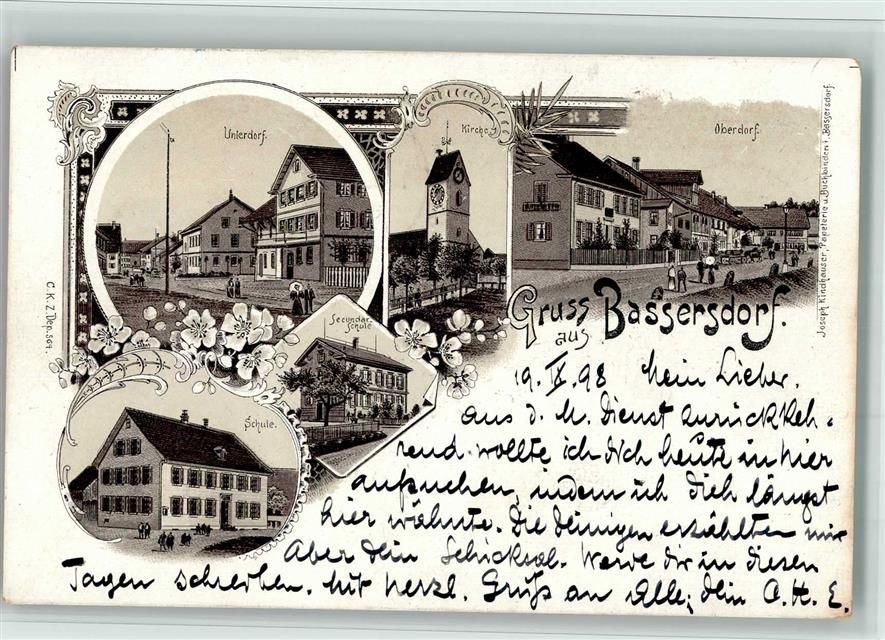 Unterdorf.
Kirche
Oberdorf.
Joseph Kindhauser, Papeterie u. Buchbinder i. Bassersdorf.
C. K. Z. Dep. 564.
Secundar-
Schule
Schule.
Gruss
aus
Bassersdorf.
19. IX. 98 Mein Lieber.
aus d. M. Dienst zurückkeh-
rend wollte ich Dich heute in hier
aufsuchen, indem ich Dich längst
hier wähnte. Die Deinigen erzählten mir
Aber Dein Schicksal. Werde Dir in diesen
Tagen schreiben. Mit herzl. Gruß an Alle; Dein A. H. E.